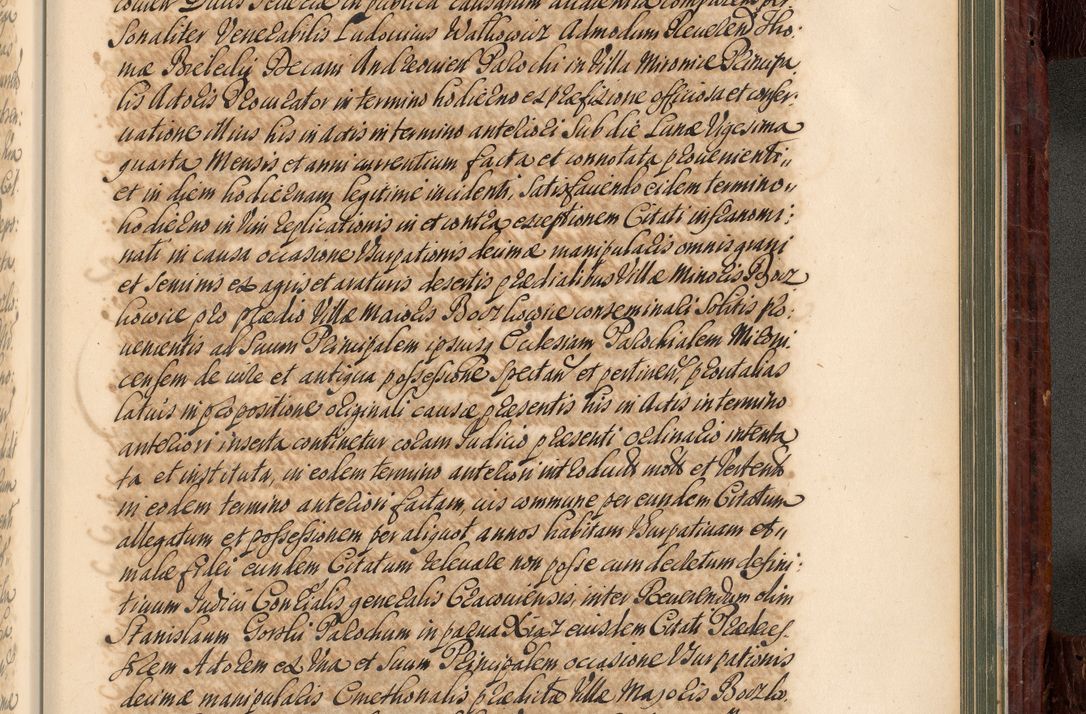 sonaliter Venerabilis Ludovicus Walkowicz Admodum Reverend Tho:
mæ Brebelij Decani Andreovien Parochi in Villa Mironice Principa
lis Actoris Procurator in termino hodierno ex præfixione officiosa et conser
vatione illius his in Actis in termino anteriori sub die Lunæ Vigesima
quarta Mensis et anni currentium facta et connotata provenienti,,
et in diem hodiernam legitime incidenti, satisfaciendo eidem termino,,
hodierno in Vim replicationis in et contra exceptionem Citati infranomi:
nati in causa occasione Usurpationis decimæ manipularis omnis grani
et seminis ex agris et araturis desertis prædialibus Villæ Minoris Borz
howice pro prædio Villæ Maioris Borzhowice conseminari solitis pro:
venientis ad suum Principalem ipsiusq Ecclesiam Parochialem Mironi
censem de iure et antiqua possessione spectan et pertinen, prout alias
latius in propositione originali causæ præsentis his in Actis in termino
anteriori inserta continetur coram Judicio præsenti ordinario intenta
ta et instituta, in eodem termino anteriori introduct mott et Vertent
in eodem termino anteriori factam, ius commune per eundem Citatum
allegatum et possessionem per aliquot annos habitam Usurpativam et,,
malæ fidei eundem Citatum relevare non posse cum decretum defini:
tivum Judicii Conralis generalis Cracoviensis, inter Reverendum olim
Stanislaum Gorski Parochum in pagua Xiaz eiusdem Citati Prædeces
sorem Actorem ex Una et suum Principalem occasione Usurpationis
decimæ manipularis Cmethonalis prædictæ Villæ Majoris Borzho